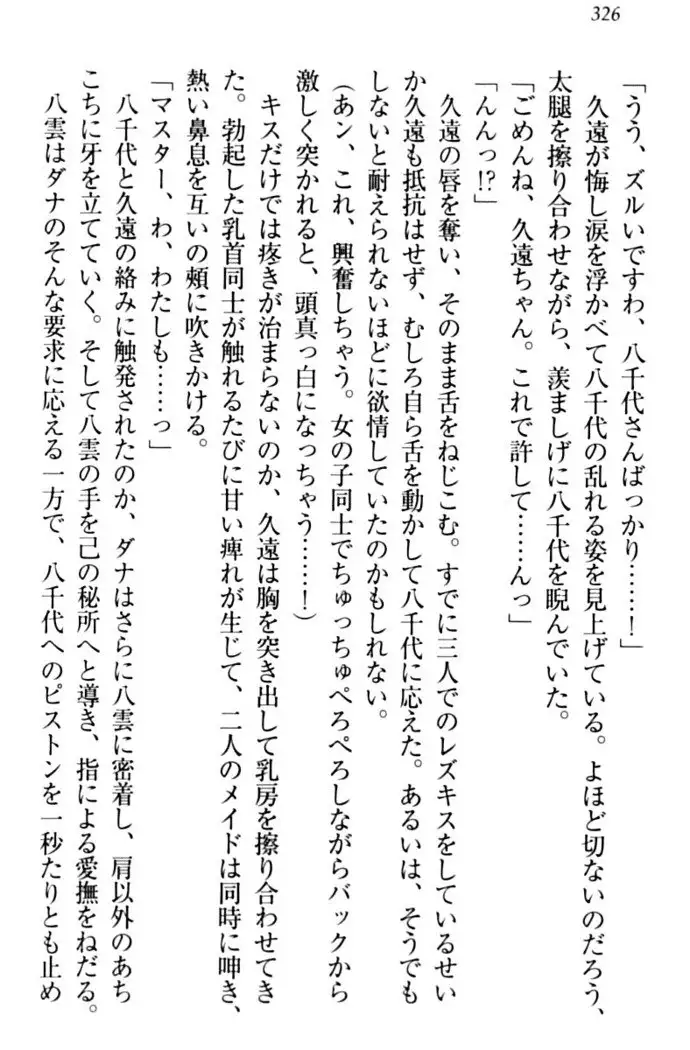 326
「うう、ズルいですわ、八千代さんばっかり……！」
久遠が悔し涙を浮かべて八千代の乱れる姿を見上げている。よほど切ないのだろう、
太腿を擦り合わせながら、羨ましげに八千代を睨んでいた。
「ごめんね、久遠ちゃん。これで許して……んっ」
「んんっ!?」
久遠の唇を奪い、そのまま舌をねじこむ。すでに三人でのレズキスをしているせい
か久遠も抵抗はせず、むしろ自ら舌を動かして八千代に応えた。あるいは、そうでも
しないと耐えられないほどに欲情していたのかもしれない。
（あン、これ、興奮しちゃう。女の子同士でちゅっちゅぺろぺろしながらバックから
激しく突かれると、頭真っ白になっちゃう……！）
キスだけでは疼きが治まらないのか、久遠は胸を突き出して乳房を擦り合わせてき
た。勃起した乳首同士が触れるたびに甘い痺れが生じて、二人のメイドは同時に呻き、
熱い鼻息を互いの頬に吹きかける。
「マスター、わ、わたしも……っ」
八千代と久遠の絡みに触発されたのか、ダナはさらに八雲に密着し、肩以外のあち
こちに牙を立てていく。そして八雲の手を己の秘所へと導き、指による愛撫をねだる。
八雲はダナのそんな要求に応える一方で、八千代へのピストンを一秒たりとも止め